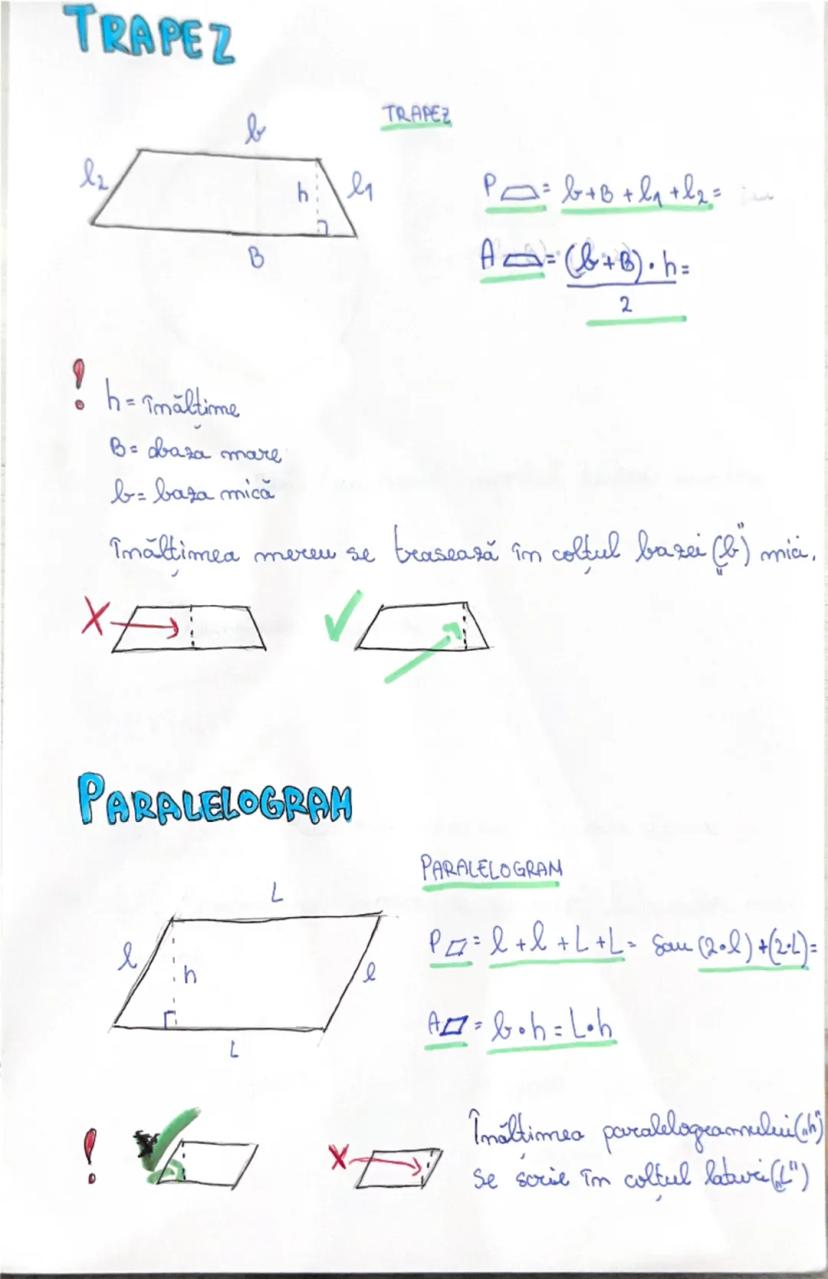 TRAPEZ
TRAPEZ
b
l2
h
l1
B
P▱= b+B+l1+l2=
A▱= (b+B)·h=
2
!
h= înălțime
B= baza mare
b= baza mică
Înălțimea mereu se trasează în colțul bazei („b") mici.
X
PARALELOGRAM
PARALELOGRAM
L
l
h
l
L
P▱= l+l+L+L= sau (2·l)+(2·L)=
A▱= b·h=L·h
!
X
Înălțimea paralelogramului („h")
se scrie în colțul laturi („L")